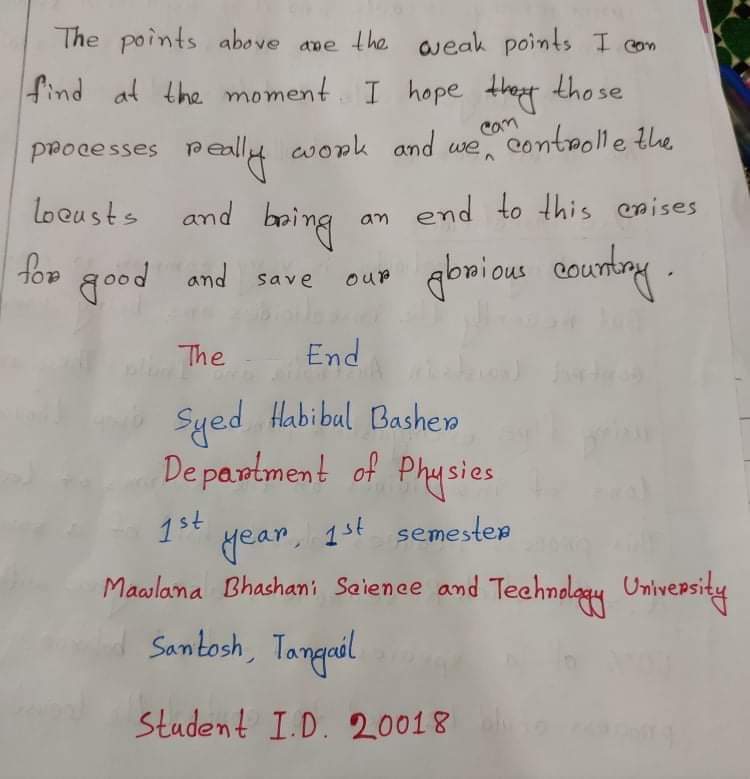 The points above are the weak points I can
find at the moment. I hope they those
processes really work and we can controlle the
locusts and bring an end to this crises
for good and save our glorious country.
The End
Syed Habibul Basher
Department of Physics
1st year, 1st semester
Mawlana Bhashani Science and Technology University
Santosh, Tangail
Student I.D. 20018